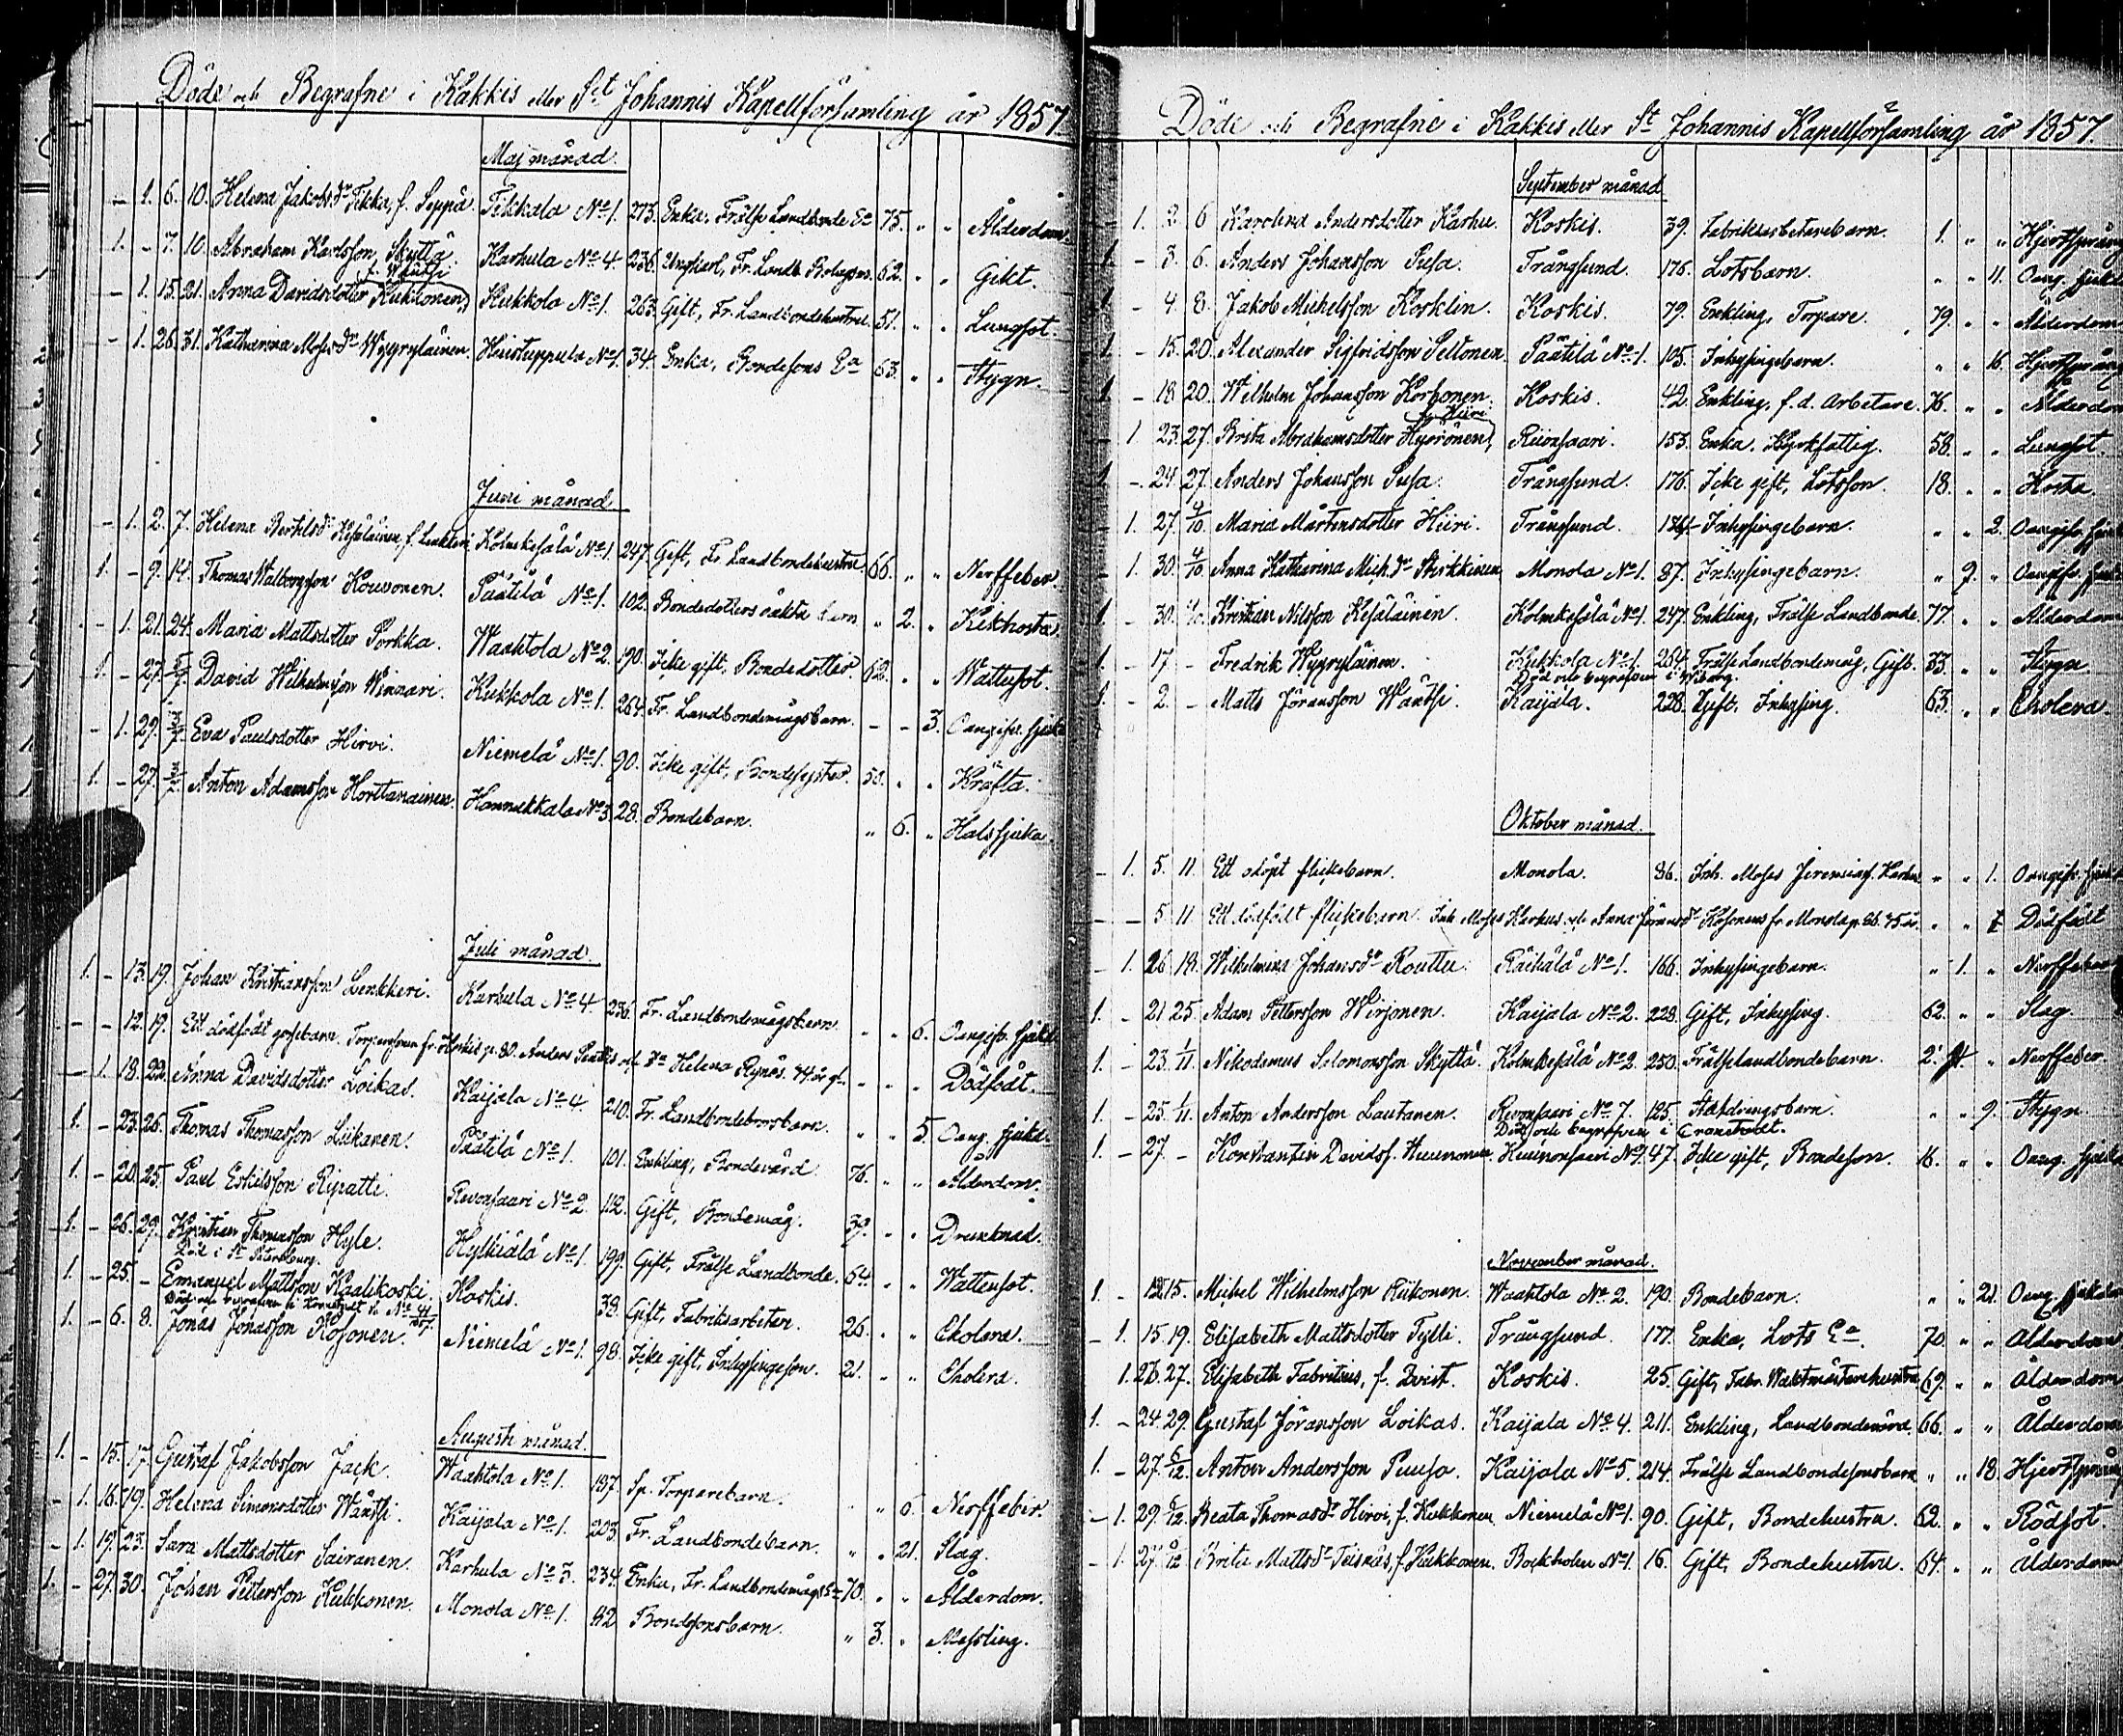 Döde och Begrafne i Kakkis eller S:t Johannis Kapellförsamling år 1857
Maj månad.
– 1. 6. 10. Helena Jakobsd:r Tikka, f. Seppä. Tikkala No 1. 273. Enka, Frälse Landbonde E:a 75. " " Ålderdom.
1. – 7. 10. Abraham Karlsson Skyttä. Karhula No 4. 236. Ungkarl, Fr. Landb. Bolagsm. 62. " " Gikt.
f. Wäntsi
– 1. 15. 21. Anna Davidsdotter Kukkonen, Kukkola No 1. 263. Gift, Fr. Landbondehustru. 51. " " Lungsot.
– 1. 26. 31. Katharina Mosesd:r Wyyryläinen. No 1. 34. Enka, Bondesons E:a 63. " " Stygn.
Juni månad
– 1. 2. 7. Helena Bertilsd:r Kesäläinen, f. Lenkkeri Kolmikesälä No 1. 247. Gift, Fr. Landbondehustru. 66. " " Nerffeber.
1. – 9. 14. Thomas Walborgsson Kouvonen. Päätilä No 1. 102. Bondedotters oäkta barn " 2. " Kikhosta.
– 1. 21. 24. Maria Mattsdotter Porkka. Waahtola No 2. 190. Icke gift, Bondedotter. 62. " " Wattusot.
1. – 27. 5/7. David Wilhelmsson Winnari. Kukkola No 1. 264. Fr. Landbondemågsbarn. – – 3. Oangifv. sjukd.
– 1. 29. 3/7. Eva Paulsdotter Hirvi. Niemelä No 1. 90. Icke gift, Bondesyster. 50. " " Kräfta.
1. – 27. Anton Adamsson Horttanainen. Hannukkala No 3. 28. Bondebarn. " 6. " Halssjuka.
Juli månad.
1. – 13. 19. Johan Kristiansson Lenkkeri. Karhula No 4. 236. Fr. Landbondemågsbarn. " " 6. Oangifv. sjukd.
– – 12. 19. Ett dödfödt gossebarn. fr. Koskis p. 80. Anders och E:a Helena Rynäs. 44 år gl. " " " Dödfödt.
– 1. 18. 22. Anna Davidsdotter Loikas. Kaijala No 4. 210. Fr. Landbondebrorsbarn. " " 5. Oang. sjukd.
1. – 23. 26. Thomas Thomasson Liikanen. Päätilä No 1. 101. Enkling, Bondevärd 76. " " Ålderdom.
1. – 20. 25. Paul Eskilsson Ripatti. Revonsaari No 2. 112. Gift, Bondemåg. 39. " " Drunknad.
1. – 26. 29. Kristian Thomasson Hyle. Hylkiälä No 1. 199. Gift, Frälse Landbonde. 64. " " Wattusot.
Död i S:t Petersburg.
1. – 25. – Emanuel Mattsson Kaalikoski. Koskis. 38. Gift, Fabriksarbetare. 26. " " Cholera.
Död och begrafven i Kronstadt
1. – 6. 8. Jonas Jonasson Kosonen. Niemelä No 1. 98. Icke gift, Inhysingeson. 21. " " Cholera.
Augusti månad.
1. – 15. 17. Gustaf Jakobsson Jack. Waahtola No 1. 197. Sp. Torparebarn. " " 6. Nerffeber.
– 1. 16. 19. Helena Simonsdotter Wäntsi. Kaijala No 1. 203. Fr. Landbondebarn. " " 21. Slag.
– 1. 19. 23. Sara Mattsdotter Sairanen. Karhula No 3. 234. Enka, Fr. Landbondemågs E:a 70. " " Ålderdom.
1. – 27. 30. Johan Pettersson Kukkonen. Monola No 1. 82 Bondesonsbarn. " 3. " Messling.
Döde och Begrafne i Kakkis eller S:t Johannis Kapellförsamling år 1857.
September månad
– 1. 2. 6 Karolina Andersdotter Karhu. Koskis. 39. Fabriksarbetarebarn. 1. " " Hjertsprång
1. – 3. 6. Anders Johansson Susa. Trångsund. 176. Lotsbarn. " " 11. Oang. sjukd
1. – 4. 8. Jakob Michelsson Kosklin. Koskis. 79. Enkling, Torpare. 79. " " Ålderdom
1. – 15. 20. Alexander Sigfridsson Peltonen. Päätilä No 1. 105. Inhysingebarn. " " 16. Hjertsprång
1. – 18. 20. Wilhelm Johansson Korhonen. Koskis. 42. Enkling, f.d. Arbetare. 76. " " Ålderdom
f. Hiiri
– 1. 23. 27. Brita Abrahamsdotter Hyvönen, Revonsaari. 153. Enka. Kyrkfattig. 58. " " Lungsot.
1. – 24. 27. Anders Johansson Susa. Trångsund. 176. Icke gift, Lotsson. 18. " " Hosta.
– 1. 27. 4/10. Maria Mårtensdotter Hiiri. Trångsund. Inhysingebarn. " " 2. Oangifv.
– 1. 30. 4/10. Anna Katharina Mich.d:r Stirkkinen Monola No 1. 87. Inhysingebarn. " 9. " Oangifv.
1. – 30. Kristian Nilsson Kesäläinen. Kolmikesälä No 1. 247. Enkling, Frälse Landbonde. 77. " " Ålderdom
1. – 17 – Fredrik Wyyryläinen. Kukkola No 1. 264. Frälse Landbondemåg, Gift. 33. " " Stygn
Död och begrafven i Wiborg.
1. – 2. – Matts Jöransson Wäntsi. Kaijala. 228. Gift, Inhysing. 63. " " Cholera.
Oktober månad.
– 1. 5. 11. Ett odöpt flickebarn. Monola. 86. Inh. Moses Jeremiasf. Karhus " " 1. Oangifv. sjukd
– – 5. 11 Ett dödfödt flickebarn. Inh. Moses Karhus och Anna Jöransd:r Kosonens fr. Monola p. 86. 45 år. " " Dödfödt
– 1. 26 18. Wilhelmina Johansd:r Routtu. Räikälä No 1. 166. Inhysingebarn. " 1. " Nerffeber
1. – 21. 25. Adam Pettersson Wirjonen. Kaijala No 2. 228. Gift, Inhysing. 62. " " Slag.
1. – 23. 1/11. Nikodemus Salomonsson Skyttä. Kolmikesälä No 2. 250. Frälselandbondebarn. 2. " Nerffeber
1. – 25. 1/11. Anton Andersson Lautanen. Revonsaari No 7. 125. Åldringsbarn. " " 9. Stygn
Död och begrafven i Cronstadt.
1. – 27. – Konstantin Davidss. Huunonen. No 1. 47. Icke gift, Bondeson. 16. " " Oang. sjukd
November månad.
1. – 12. 15. Michel Wilhelmsson Riikonen. Waahtola No 2. 190. Bondebarn. " " 21. Oang. sjukdom
– 1. 15. 19. Elisabeth Mattsdotter Tylli. Trångsund. 177. Enka, Lots E:a. 70. " " Ålderdom
1. 26. 27. Elisabeth Fabritius, f. Qvist. Koskis. 25. Gift, Fabr. Waktmästarehustru. 69. " " Ålderdom
1. – 24. 29. Gustaf Jöransson Loikas. Kaijala No 4. 211. Enkling, Landbondevärd. 66. " " Ålderdom
1. – 27. 6/12. Anton Andersson Puusa. Kaijala No 5. 214. Frälse Landbondesonsbarn " " 18. Hjertsprång
– 1. 29. 6/12. Beata Thomasd:r Hirvi, f. Kukkonen. Niemelä No 1. 90. Gift, Bondehustru. 62. " " Rödsot.
– 1. 27. 6/12 Brita Mattsd:r Teiskäs, f. Kukkonen. Bockholm No 1. 16. Gift, Bondehustru. 64. " " Ålderdom